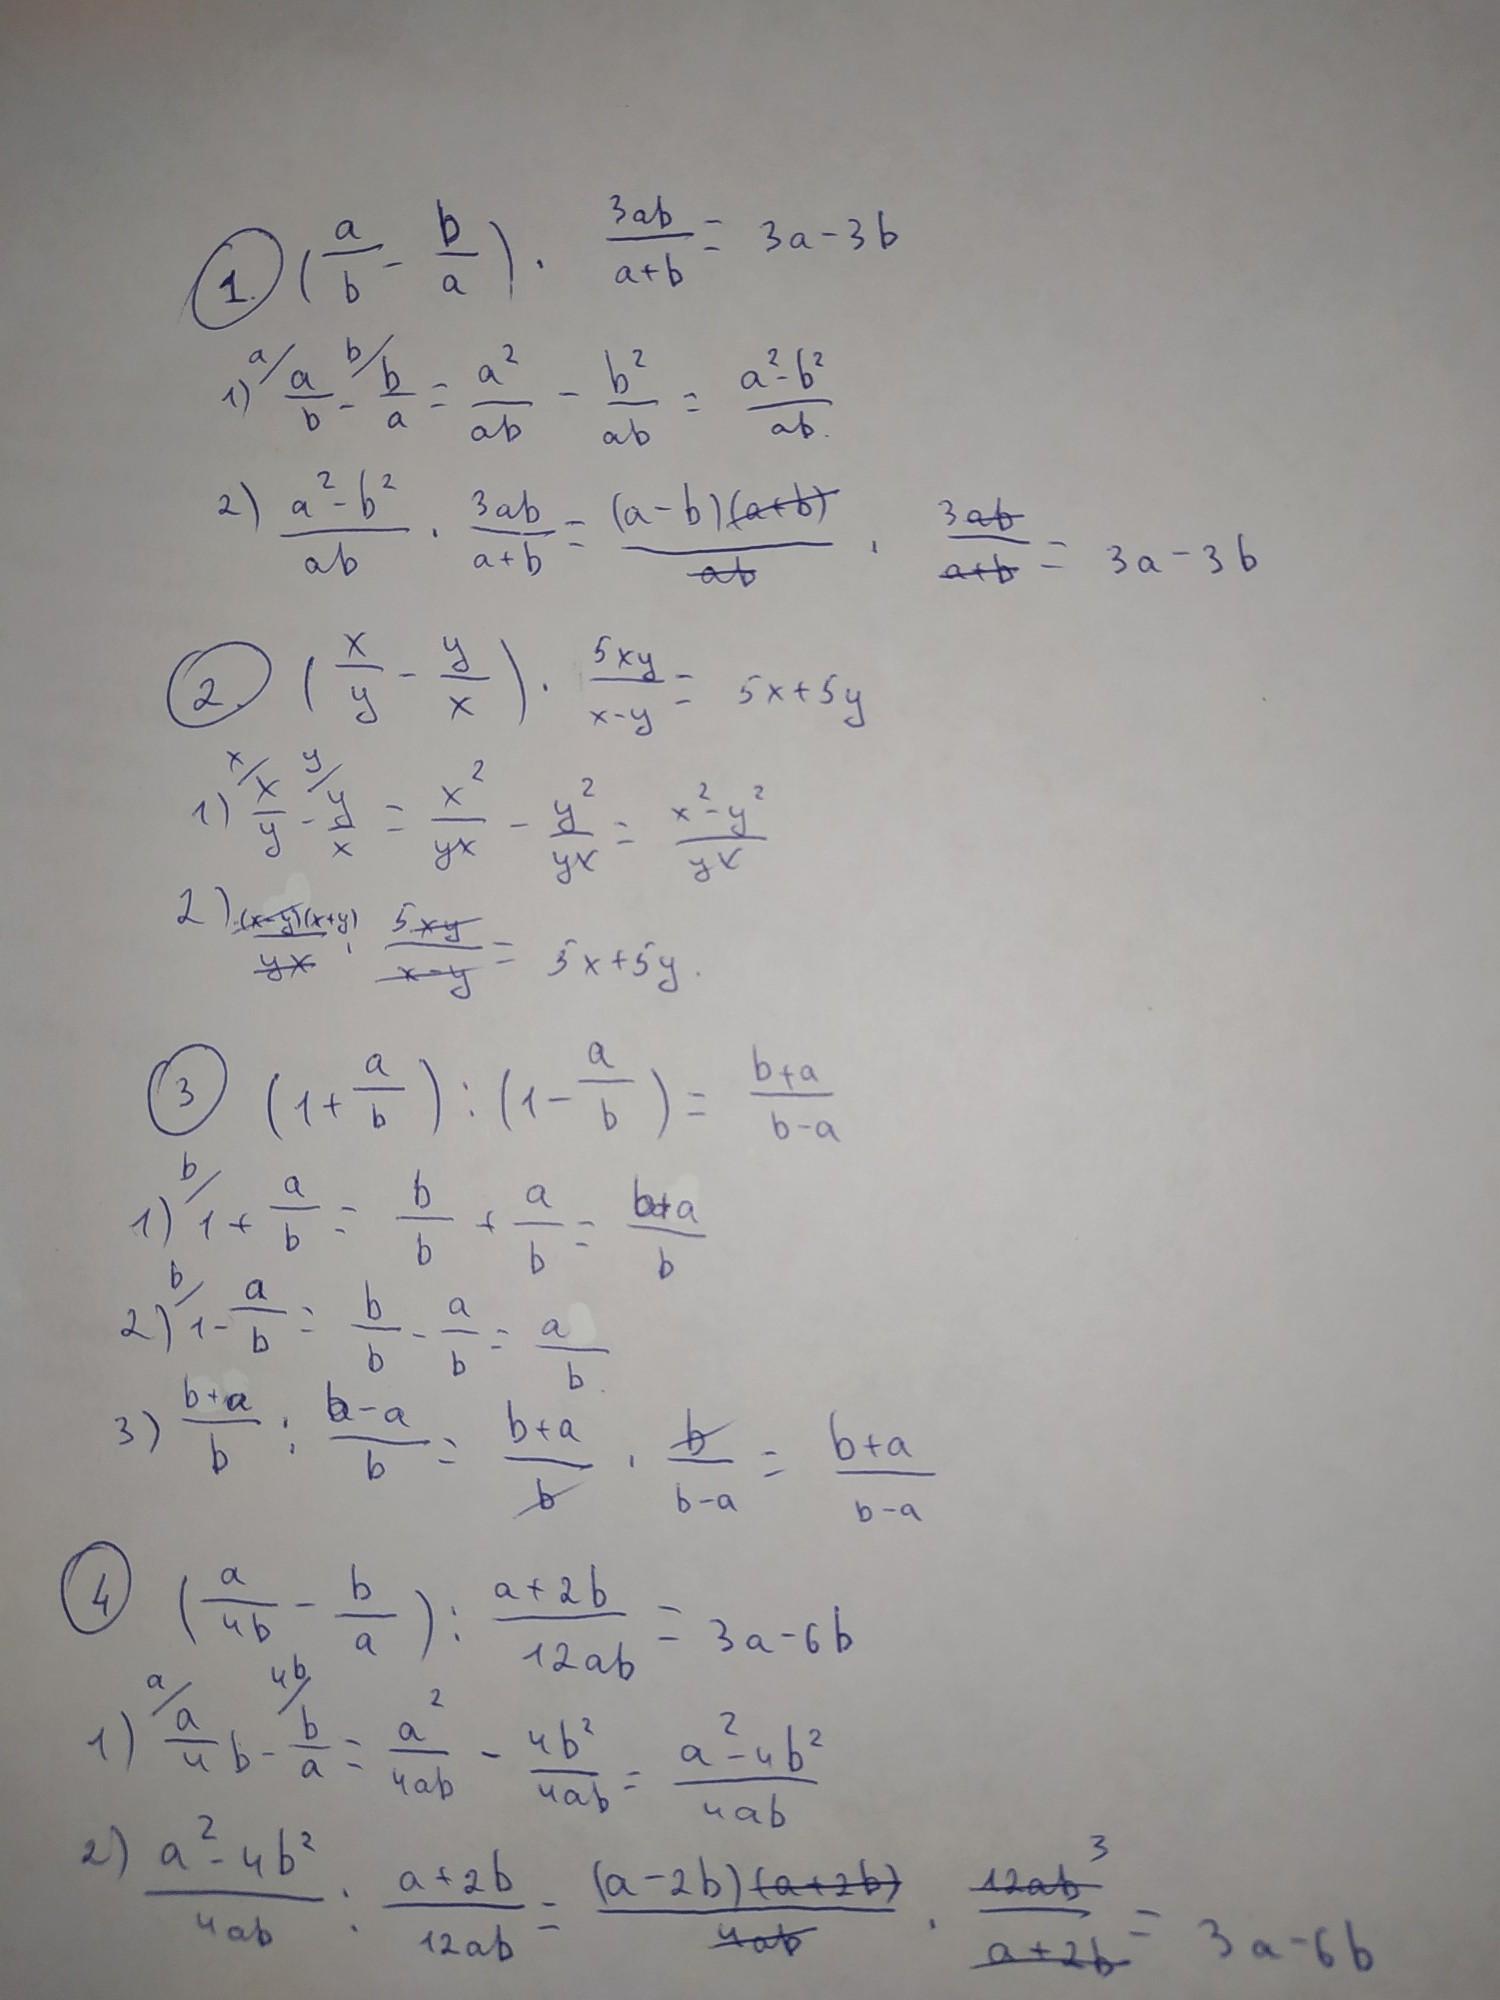 1. (a/b - b/a) · 3ab/(a+b) = 3a-3b
1) a/ a/b - b/ b/a = a²/ab - b²/ab = (a²-b²)/ab.
2) (a²-b²)/ab · 3ab/(a+b) = (a-b)(a+b)/ab · 3ab/(a+b) = 3a-3b
2. (x/y - y/x) · 5xy/(x-y) = 5x+5y
1) x/ x/y - y/ y/x = x²/yx - y²/yx = (x²-y²)/yx
2) (x-y)(x+y)/yx · 5xy/(x-y) = 5x+5y.
3 (1+a/b) : (1-a/b) = (b+a)/(b-a)
1) b/ 1+a/b = b/b + a/b = (b+a)/b
2) b/ 1-a/b = b/b - a/b = a/b.
3) (b+a)/b : (b-a)/b = (b+a)/b · b/(b-a) = (b+a)/(b-a)
4 (a/4b - b/a) : (a+2b)/12ab = 3a-6b
1) a/ a/4 b - 4b/ b/a = a²/4ab - 4b²/4ab = (a²-4b²)/4ab
2) (a²-4b²)/4ab : (a+2b)/12ab = (a-2b)(a+2b)/4ab · 12ab 3/(a+2b) = 3a-6b